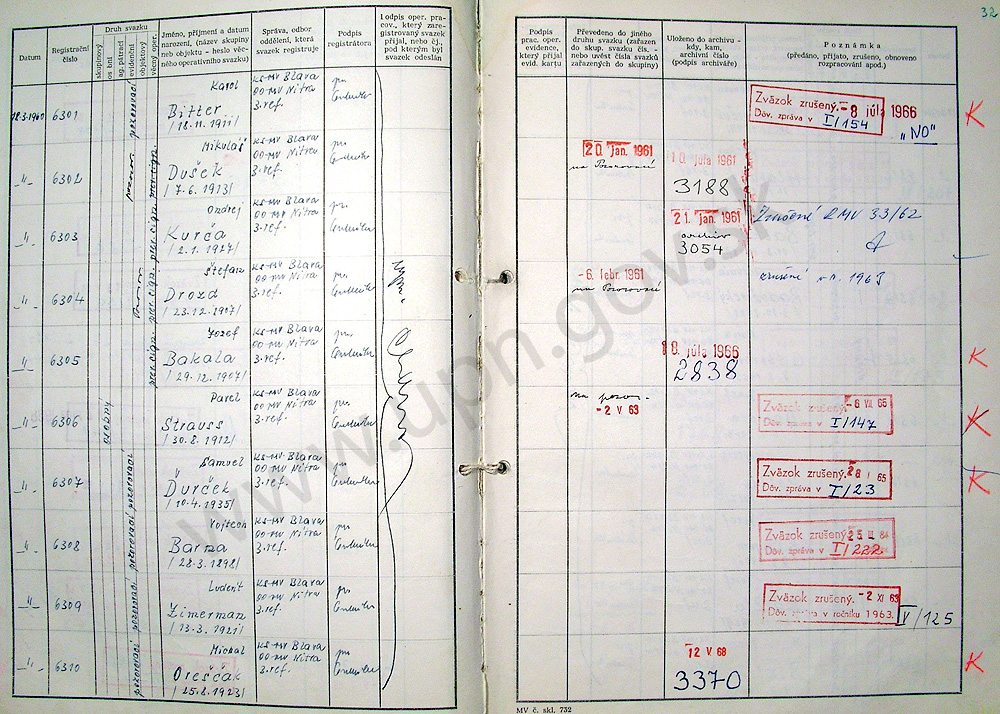 32
Datum
Registrační číslo
Druh svazku
skupinový
os bní
ag pátrací
evidenční
objektový
věcný oper.
Jméno, příjmení a datum narození, (název skupiny nebo objektu - heslo věcného operativního svazku)
Správa, odbor oddělení, která svazek registruje
Podpis registrátora
Podpis oper. prac., který zaregistrovaný svazek přijal, nebo čj., pod kterým byl svazek odeslán
Podpis prac. oper. evidence, který přijal evid. kartu
Převedeno do jiného druhu svazku (zařazen do skup. svazku čís. - nebo uvést čísla svazků zařazených do skupiny)
Uloženo do archivu - kdy, kam, archivní číslo (podpis archiváře)
Poznámka
(předáno, přijato, zrušeno, obnoveno rozpracování apod.)
18.3.1960 6301 pozorovací Karol Bitter /18.11.1911/ KS-MV Blava OO-MV Nitra 3.ref.
Zväzok zrušený. -8 júla 1966
Dôv. zpráva v I/154
"NO" K
-"- 6302 Mikuláš Dušek /7.6.1913/ KS-MV Blava OO-MV Nitra 3.ref.
20. jan. 1961
na Pozorovací
10 júla 1961
3188
-"- 6303 Ondrej Kurča /2.1.1927/ KS-MV Blava OO-MV Nitra 3.ref.
21. jan. 1961
archív
3054
Zničené RMV 33/62
-"- 6304 Štefan Drozd /23.12.1907/ KS-MV Blava OO-MV Nitra 3.ref.
-6. febr. 1961
na Pozorovací
zrušené v r. 1963
-"- 6305 Jozef Bakala /29.12.1907/ KS-MV Blava OO-MV Nitra 3.ref.
18. júla 1966
2838
K
-"- 6306 osobný Pavel Strauss /30.8.1912/ KS-MV Blava OO-MV Nitra 3.ref.
na pozor.
-2 V 63
Zväzok zrušený. -6 VII 65
Dôv. zpráva v I/147
K
-"- 6307 pozorovací Samuel Ďurček /10.4.1935/ KS-MV Blava OO-MV Nitra 3.ref.
Zväzok zrušený. 28 I 65
Dôv. zpráva v I/23
K
-"- 6308 pozorovací Vojtech Barna /28.3.1898/ KS-MV Blava OO-MV Nitra 3.ref.
Zväzok zrušený.
Dôv. zpráva v I/222
-"- 6309 pozorovací Ludevít Zimerman /13.3.1921/ KS-MV Blava OO-MV Nitra 3.ref.
Zväzok zrušený. -2 XI 63
Dôv. zpráva v ročníku 1963. V/125
-"- 6310 pozorovací Michal Oreščák /25.2.1923/ KS-MV Blava OO-MV Nitra 3.ref.
12 V 68
3370
K
MV č. skl. 732
www.upn.gov.sk